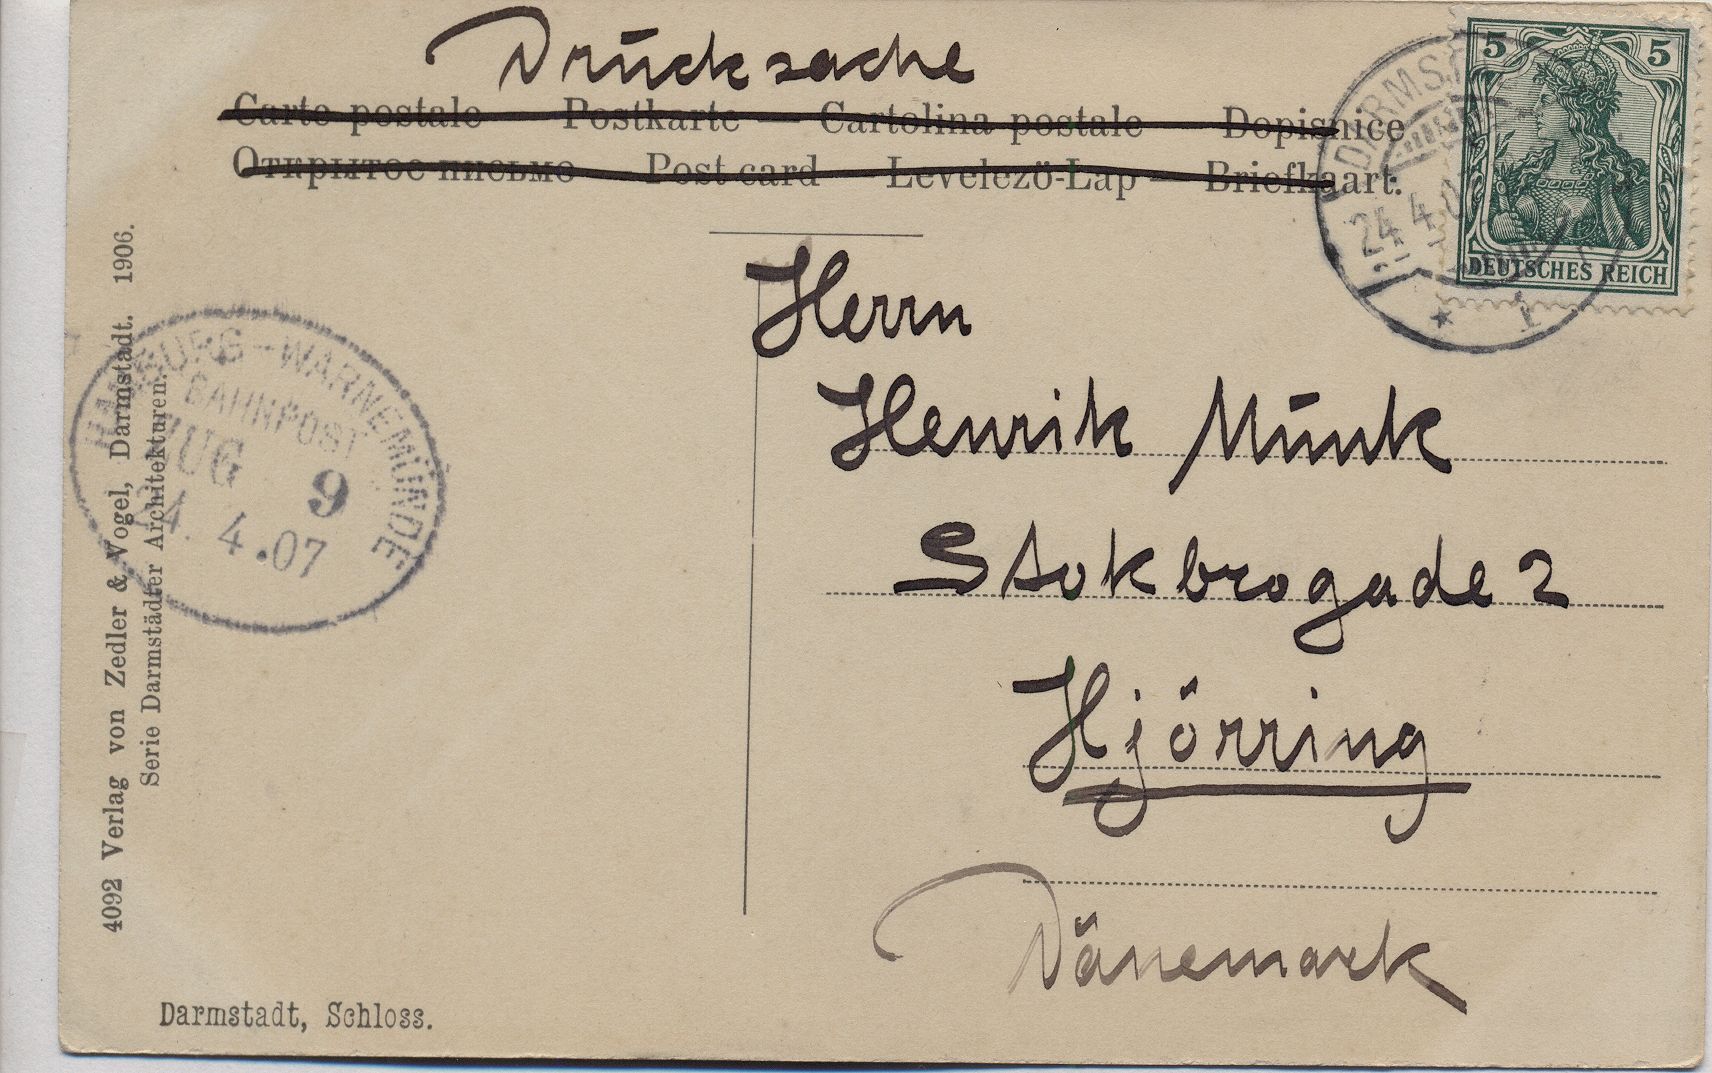 Drucksache
Carte postale — Postkarte — Cartolina postale — Dopisnice
Открытое письмо — Post card — Levelező-Lap — Briefkaart.
5 5
DEUTSCHES REICH
DARMST
24.4.07
* 1
Herrn
Henrik Munk
Stokbrogade 2
Hjörring
Dänemark
HAMBURG-WARNEMÜNDE
BAHNPOST
ZUG 9
24.4.07
4092 Verlag von Zedler & Vogel, Darmstadt. 1906.
Serie Darmstädter Architekturen.
Darmstadt, Schloss.